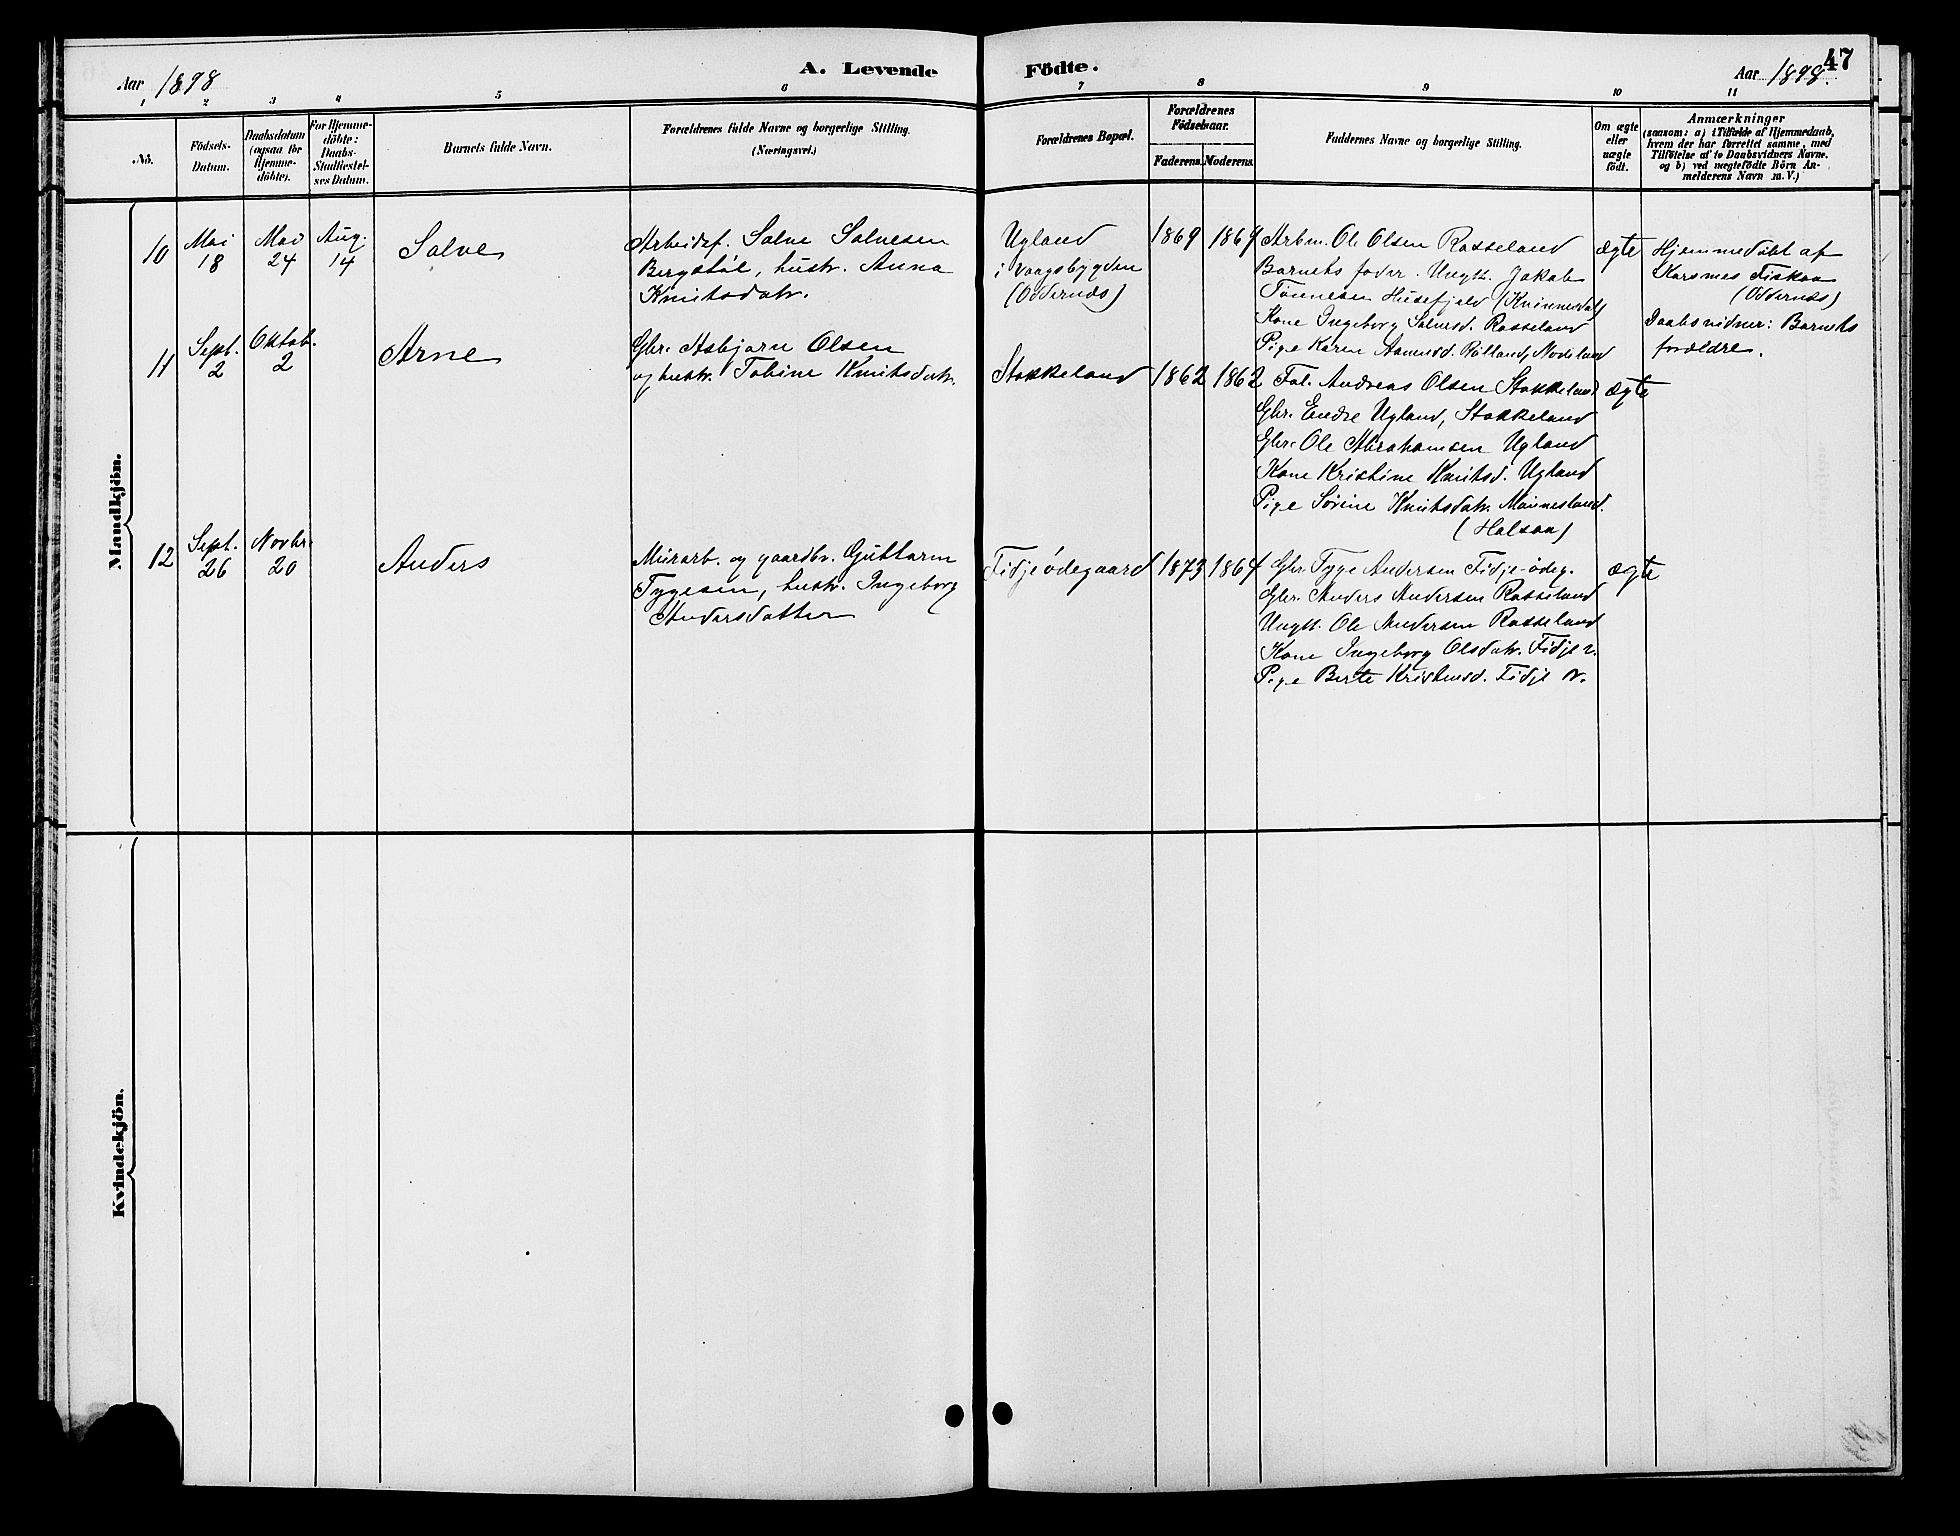 47
Aar 1898
A. Levende Födte.
Aar 1898.
1 2 3 4 5 6 7 8 9 10 11
No.
Födsels-
Datum.
Daabsdatum
(ogsaa for
Hjemme-
döbte).
For Hjemme-
döbte:
Daabs-
Stadfæstel-
ses Datum.
Barnets fulde Navn.
Forældrenes fulde Navne og borgerlige Stilling.
(Næringsvei.)
Forældrenes Bopæl.
Forældrenes
Födselsaar.
Faderens. Moderens.
Faddernes Navne og borgerlige Stilling.
Om ægte
eller
uægte
födt.
Anmærkninger
(saasom: a) i Tilfælde af Hjemmedaab,
hvem der har forrettet samme, med
Tilföielse af to Daabsvidners Navne.
og b) ved uægtefödte Börn An-
melderens Navn m. V.)
Mandkjön.
10
Mai
18
Mai
24
Aug.
14
Salve
Arbeidsf. Salve Salvesen
Bergstøl, hustr. Anna
Knutsdatr.
Ugland
i Vaagsbygden
(Oddernes)
1869
1869
Arbm. Ole Olsen Rosseland
Barnets fader. Ungk. Jakob
Tønnesen Husefjeld (Kvinnesdal)
Kone Ingeborg Salvesd. Rosseland
Pige Karen Aanensd. Rølland, Nodeland
ægte
Hjemmedøbt af
Karsmes Fiskaa
(Oddernes)
Daabsvidner: Barnets
forældre.
11
Sept.
2
Oktob.
2
Arne
Gbr. Asbjørn Olsen
og hustr. Tobine Knutsdatr.
Stokkeland
1862
1862
Fol. Andreas Olsen Stokkeland
Gbr. Endre Ugland, Stokkeland
Gbr. Ole Abrahamsen Ugland
Kone Kristine Knutsd. Ugland
Pige Sørine Knutsdatr. Mannesland.
(Halsaa)
ægte
12
Sept.
26
Novbr.
20
Anders
Murarb. og gaardbr. Guttorm
Tygesen, hustr. Ingeborg
Andersdatter
Fidje ødegaard
1873
1864
Gbr Tyge Andersen Fidje-ødeg.
Gbr. Anders Andersen Rosseland
Ungk. Ole Andersen Rosseland
Kone Ingeborg Olsdatr. Fidje
Pige Berte Kristensd. Fidje
ægte
Kvindekjön.